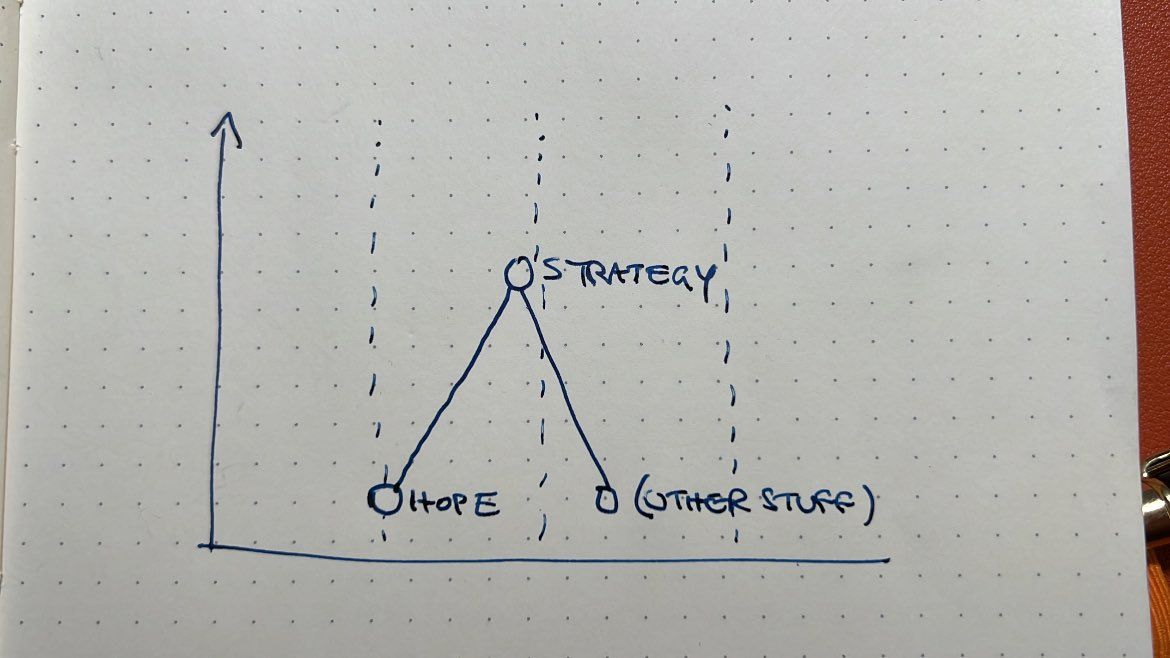 STRATEGY
HOPE
(OTHER STUFF)